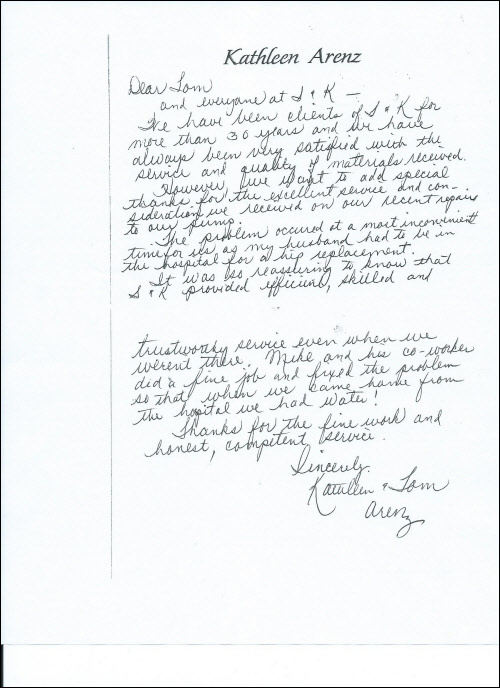 Kathleen Arenz
Dear Tom
and everyone at S & K —
We have been clients of S & K for
more than 30 years and we have
always been very satisfied with the
service and quality of materials received.
However, we want to add special
thanks for the excellent service and con-
sideration we received on our recent repairs
to our pump.
The problem occured at a most inconvenient
time for us as my husband had to be in
the hospital for a hip replacement.
It was so reassuring to know that
S & K provided efficient, skilled and
trustworthy service even when we
weren't there. Mike and his co-worker
did a fine job and fixed the problem
so that when we came home from
the hospital we had water!
Thanks for the fine work and
honest, competent service.
Sincerely,
Kathleen & Tom
Arenz